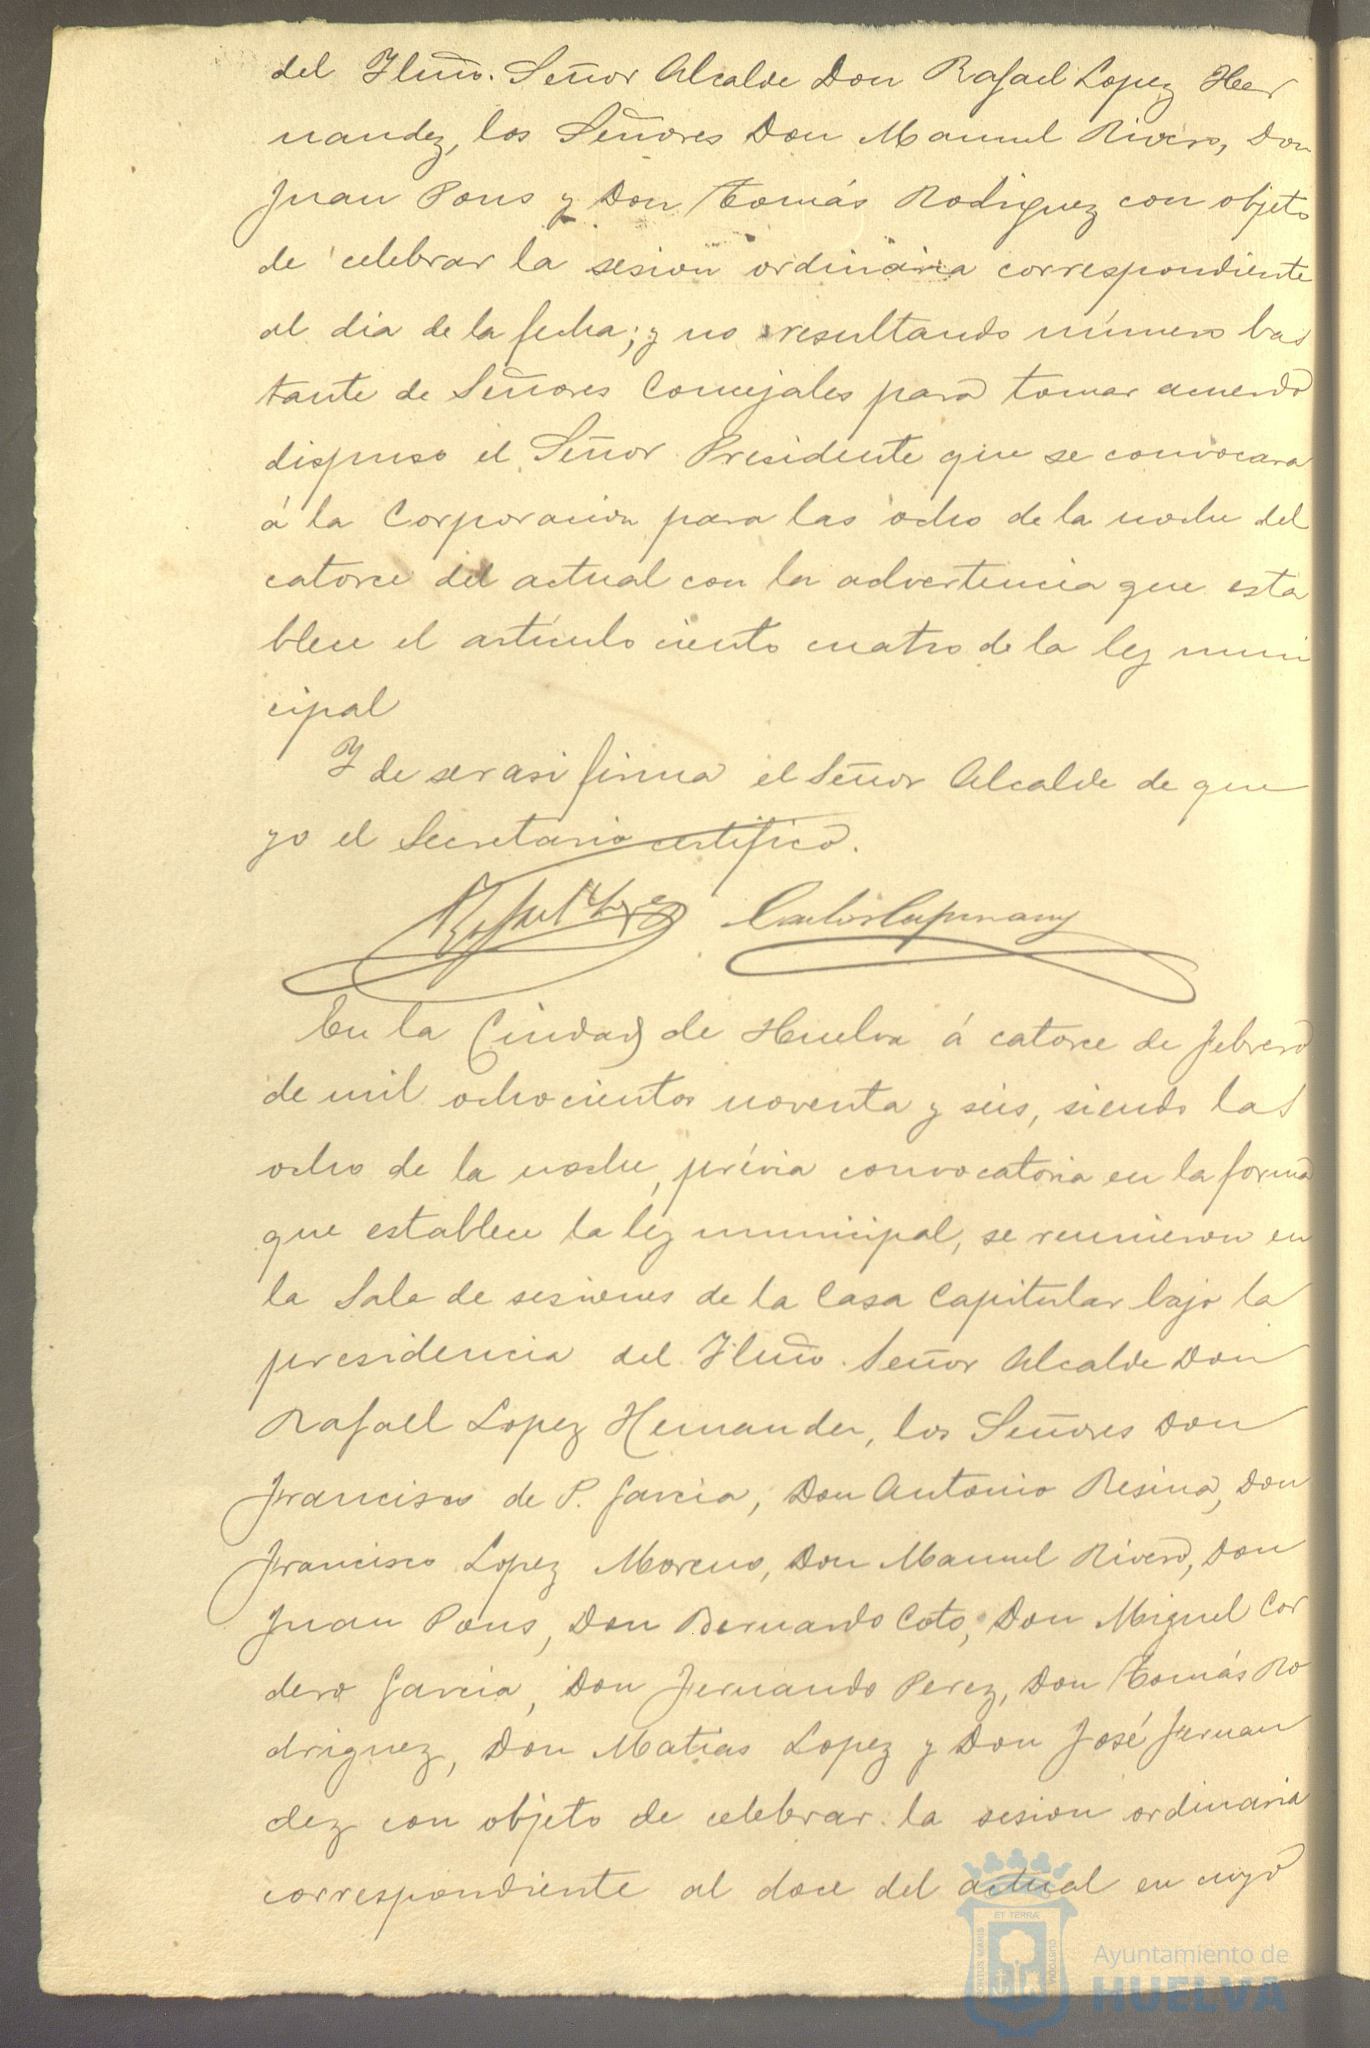 del Ylmõ. Señor Alcalde Don Rafael Lopez Her
nandez, los Señores Don Manuel Rivero, Don
Juan Pons y Don Tomás Rodriguez con objeto
de celebrar la sesion ordinaria correspondiente
al dia de la fecha; y no resultando número bas
tante de Señores Concejales para tomar acuerdo
dispuso el Señor Presidente que se convocara
á la Corporacion para las ocho de la noche del
catorce del actual con la advertencia que esta
blece el artículo ciento cuatro de la ley muni
cipal
Y de ser asi firma el Señor Alcalde de que
yo el Secretario certifico.
Rafael Lopez
En la Ciudad de Huelva á catorce de febrero
de mil ochocientos noventa y seis, siendo las
ocho de la noche, prévia convocatoria en la forma
que establece la ley municipal, se reunieron en
la Sala de sesiones de la Casa Capitular bajo la
presidencia del Ylmõ. Señor Alcalde Don
Rafael Lopez Hernandez, los Señores Don
Francisco de P. Garcia, Don Antonio Resina, Don
Francisco Lopez Moreno, Don Manuel Rivero, Don
Juan Pons, Don Bernardo Coto, Don Miguel Cor
dero Garcia, Don Fernando Perez, Don Tomás Ro
driguez, Don Matias Lopez y Don José Fernan
dez con objeto de celebrar la sesion ordinaria
correspondiente al doce del actual en cuyo
ET TERRA
PORTUS MARIS
CUSTODIA
Ayuntamiento de
HUELVA